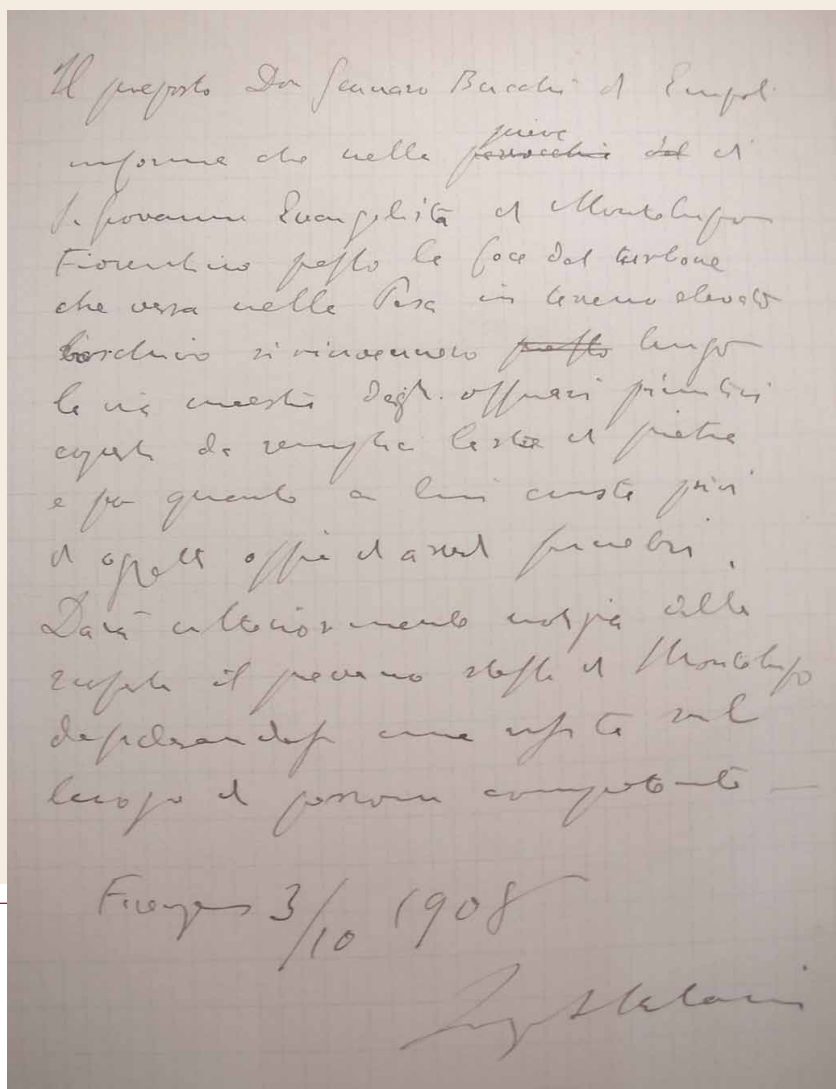 Il preposto Don Gennaro Bucchi di Empoli
informa che nella pieve parrocchia del di
S. Giovanni Evangelista di Montelupo
Fiorentino presso la foce del turbone
che versa nella Pesa in terreno elevato
boschivo si rinvennero presso lungo
la via maestra degli ossuari primitivi
coperti da semplici lastre di pietra
e per quanto a lui consta privi
di oggetti ossia di arredi funebri.
Darà ulteriormente notizia alla
il pievano stesso di Montelupo
desiderandosi una visita sul
luogo di persona competente —
Firenze 3/10 1908